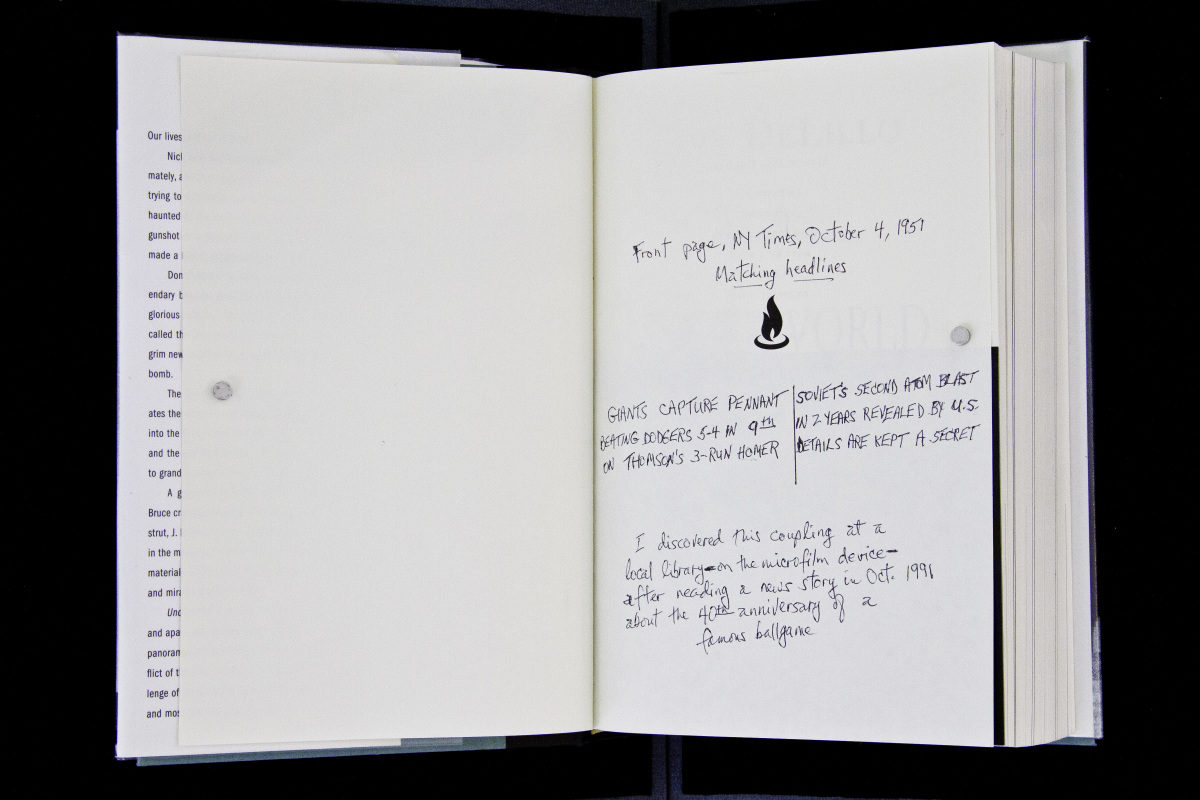 Our lives
Nick
mately, a
trying to
haunted
gunshot
made a
Don
endary b
glorious
called th
grim new
bomb.
The
ates the
into the
and the
to grand
A g
Bruce cr
strut, J.
in the m
material
and mira
Und
and apa
panoram
flict of t
lenge of
and mos
Front page, NY Times, October 4, 1951
Matching headlines
GIANTS CAPTURE PENNANT
BEATING DODGERS 5-4 IN 9th
ON THOMSON'S 3-RUN HOMER
SOVIET'S SECOND ATOM BLAST
IN 2 YEARS REVEALED BY U.S.
DETAILS ARE KEPT A SECRET
I discovered this coupling at a
local library–on the microfilm device–
after reading a news story in Oct. 1991
about the 40th anniversary of a
famous ballgame